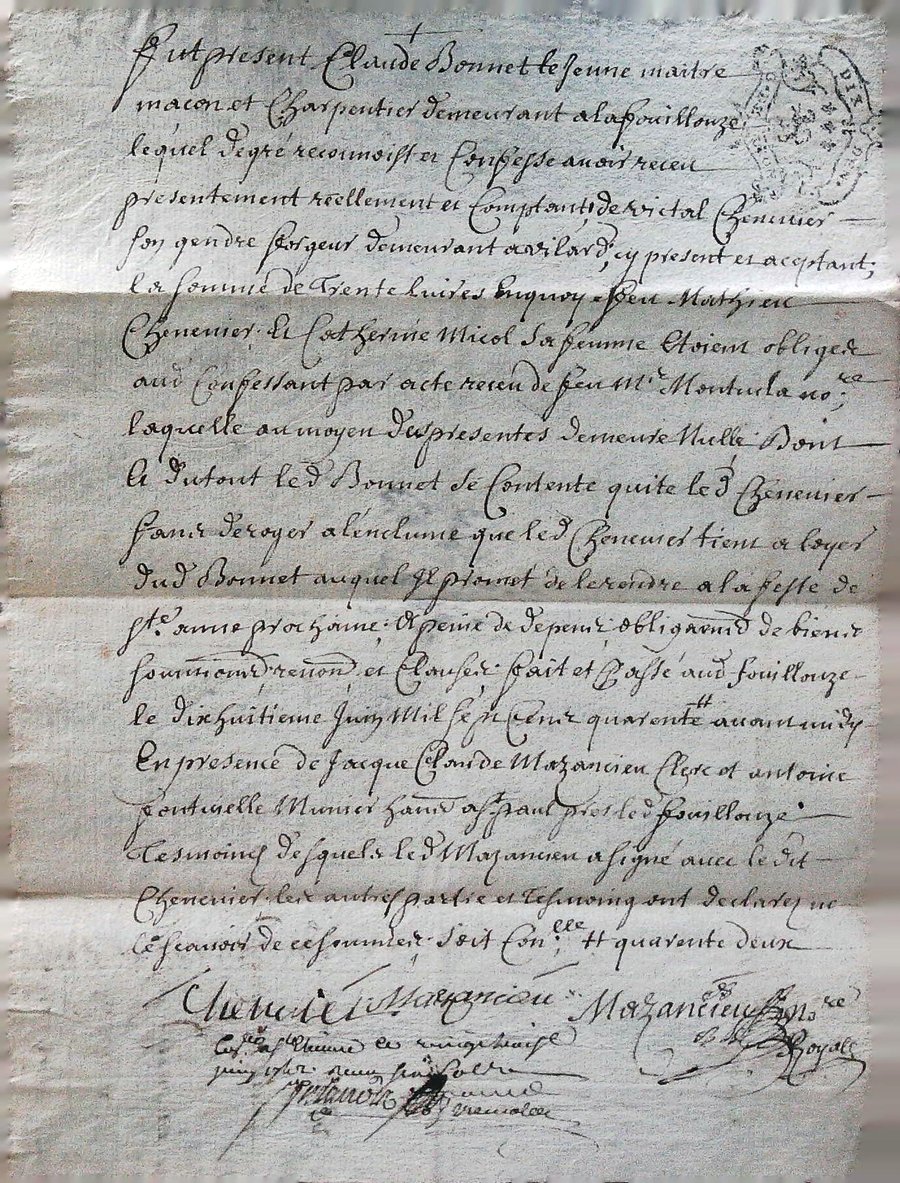 +
Fut present Claude Bonnet le Jeune maitre
macon et Charpentier demeurant a la fouillouze,
lequel de gré reconnoist et Confesse avoir receu
presentement réellement et Comptant, de victal Chenevier
son gendre forgeur demeurant a vilard, cy present et aceptant,
la somme de Trente livres Enquoy feu Mathieu
Chenevier. Et Catherine Micol Sa femme Etoient obliger
aud Confessant par acte receu de feu Mr Montucla nore,
laquelle au moyen des presentes demeure Nulle Dont
Et du tout led Bonnet Se Contente quite led Chenevier
sans deroger a lenclume que led Chenevier tient a loyer
dud Bonnet auquel Il promet de le rendre a la feste de
ste anne prochaine, A peine de depens, obligaond de biens
soumiond, renond et Clauses. fait et Passé aud fouillouze
le dixhuitieme Juin Mil sept Cens quarente ⧺ avant midy
En presence de Jacque Claude Mazancieu Clerc et antoine
fontvielle Munier habd a st paul pres led fouillouze
Tesmoins desquels led Mazancieu a signé avec le dit
Chenevier les autres partie et Tesmoing ont declarez ne
le scavoir de ce sommer. Soit Conlle ⧺ quarente deux
Chenevier Mazancieu Mazancieu nore
Royal
st Etienne le
juin 1742 receu
DIX DEN.